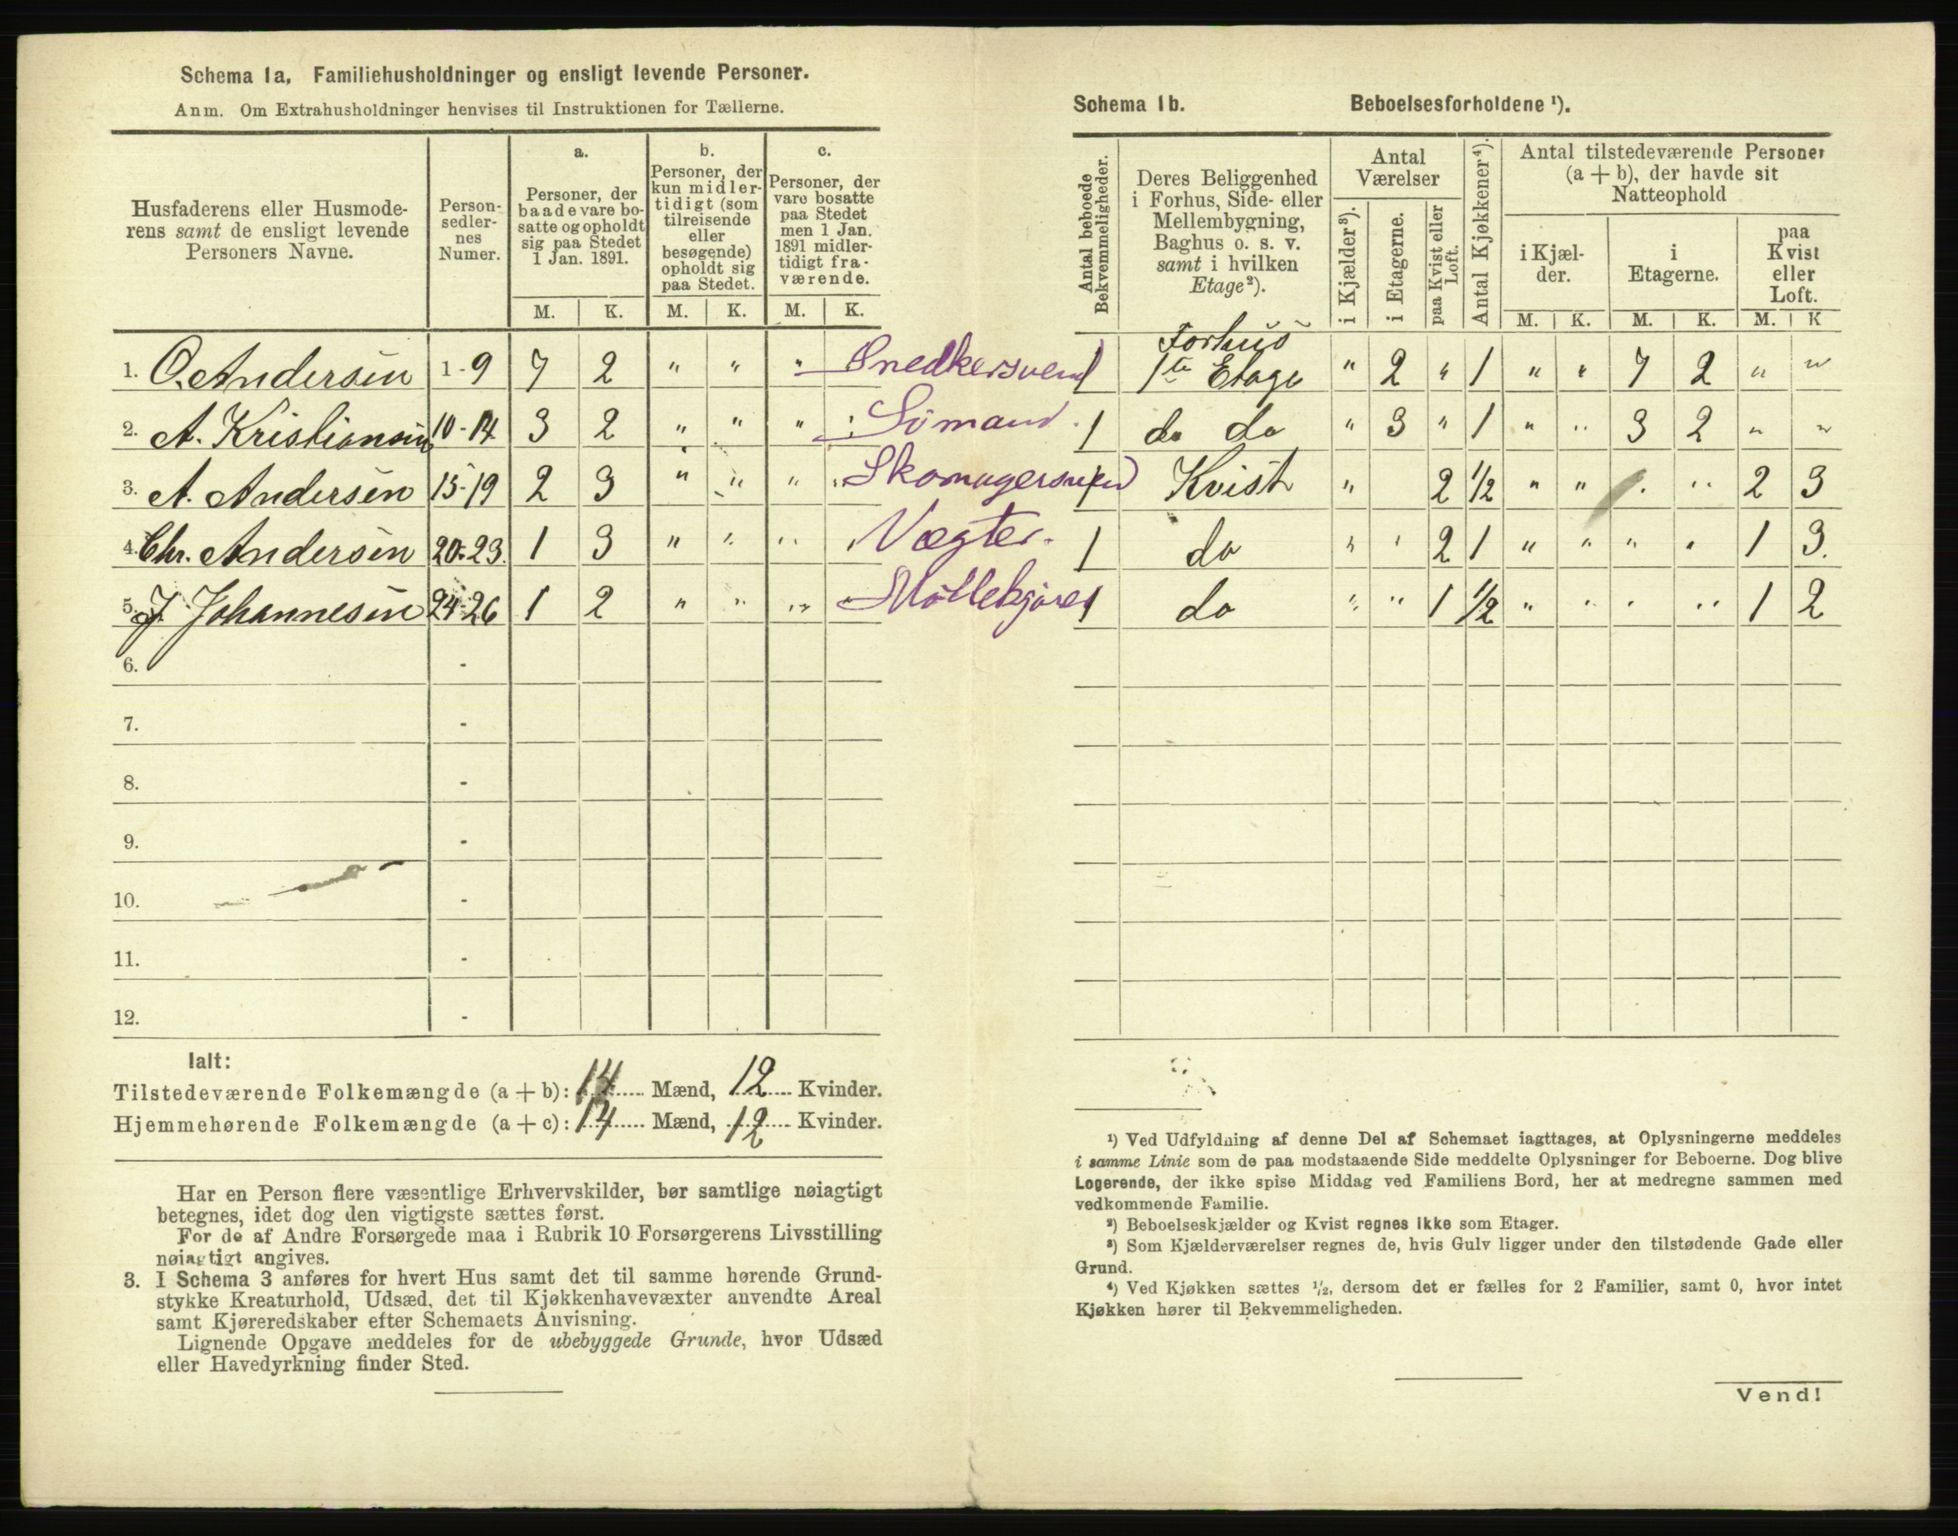 Schema 1a. Familiehusholdninger og ensligt levende Personer.
Anm. Om Extrahusholdninger henvises til Instruktionen for Tællerne.
Husfaderens eller Husmode-
rens samt de ensligt levende
Personers Navne.
Person-
sedler-
nes
Numer.
a.
Personer, der
baade vare bo-
satte og opholdt
sig paa Stedet
1 Jan. 1891.
b.
Personer, der
kun midler-
tidigt (som
tilreisende
eller
besøgende)
opholdt sig
paa Stedet.
c.
Personer, der
vare bosatte
paa Stedet
men 1 Jan.
1891 midler-
tidigt fra-
værende.
M. K. M. K. M. K.
1. O. Andersen 1-9 7 2 " " " Snedkersvend
2. A. Kristiansen 10-14 3 2 " " " " Sömand.
3. A. Andersen 15-19 2 3 " " " " Skomagersvend
4. Chr. Andersen 20-23. 1 3 " " " " Vægter.
5. J. Johannesen 24-26 1 2 " " " " Möllekjörer
6. -
7. -
8. -
9. -
10. -
11. -
12. -
Ialt:
Tilstedeværende Folkemængde (a + b): 14 Mænd, 12 Kvinder.
Hjemmehørende Folkemængde (a + c): 14 Mænd, 12 Kvinder.
Har en Person flere væsentlige Erhvervskilder, bør samtlige nøiagtigt
betegnes, idet dog den vigtigste sættes først.
For de af Andre Forsørgede maa i Rubrik 10 Forsørgerens Livsstilling
nøiagtigt angives.
3. I Schema 3 anføres for hvert Hus samt det til samme hørende Grund-
stykke Kreaturhold, Udsæd, det til Kjøkkenhavevæxter anvendte Areal
samt Kjøreredskaber efter Schemaets Anvisning.
Lignende Opgave meddeles for de ubebyggede Grunde, hvor Udsæd
eller Havedyrkning finder Sted.
Schema 1b. Beboelsesforholdene ¹).
Antal beboede
Bekvemmeligheder.
Deres Beliggenhed
i Forhus, Side- eller
Mellembygning,
Baghus o. s. v.
samt i hvilken
Etage²).
Antal
Værelser
i Kjælder³).
i Etagerne.
paa Kvist eller
Loft.
Antal Kjøkkener⁴).
Antal tilstedeværende Personer
(a + b), der havde sit
Natteophold
i Kjæl-
der.
i
Etagerne.
paa
Kvist
eller
Loft.
M. K. M. K. M. K
Forhus
1 1te Etage " 2 " 1 " " 7 2 " "
1 do do " 3 " 1 " " 3 2 " "
1 Kvist " 2 1/2 " " " " 2 3
1 do " " 2 1 " " " " 1 3.
1 do " " 1 1/2 " " " " 1 2
¹) Ved Udfyldning af denne Del af Schemaet iagttages, at Oplysningerne meddeles
i samme Linie som de paa modstaaende Side meddelte Oplysninger for Beboerne. Dog blive
Logerende, der ikke spise Middag ved Familiens Bord, her at medregne sammen med
vedkommende Familie.
²) Beboelseskjælder og Kvist regnes ikke som Etager.
³) Som Kjælderværelser regnes de, hvis Gulv ligger under den tilstødende Gade eller
Grund.
⁴) Ved Kjøkken sættes 1/2, dersom det er fælles for 2 Familier, samt 0, hvor intet
Kjøkken hører til Bekvemmeligheden.
Vend!